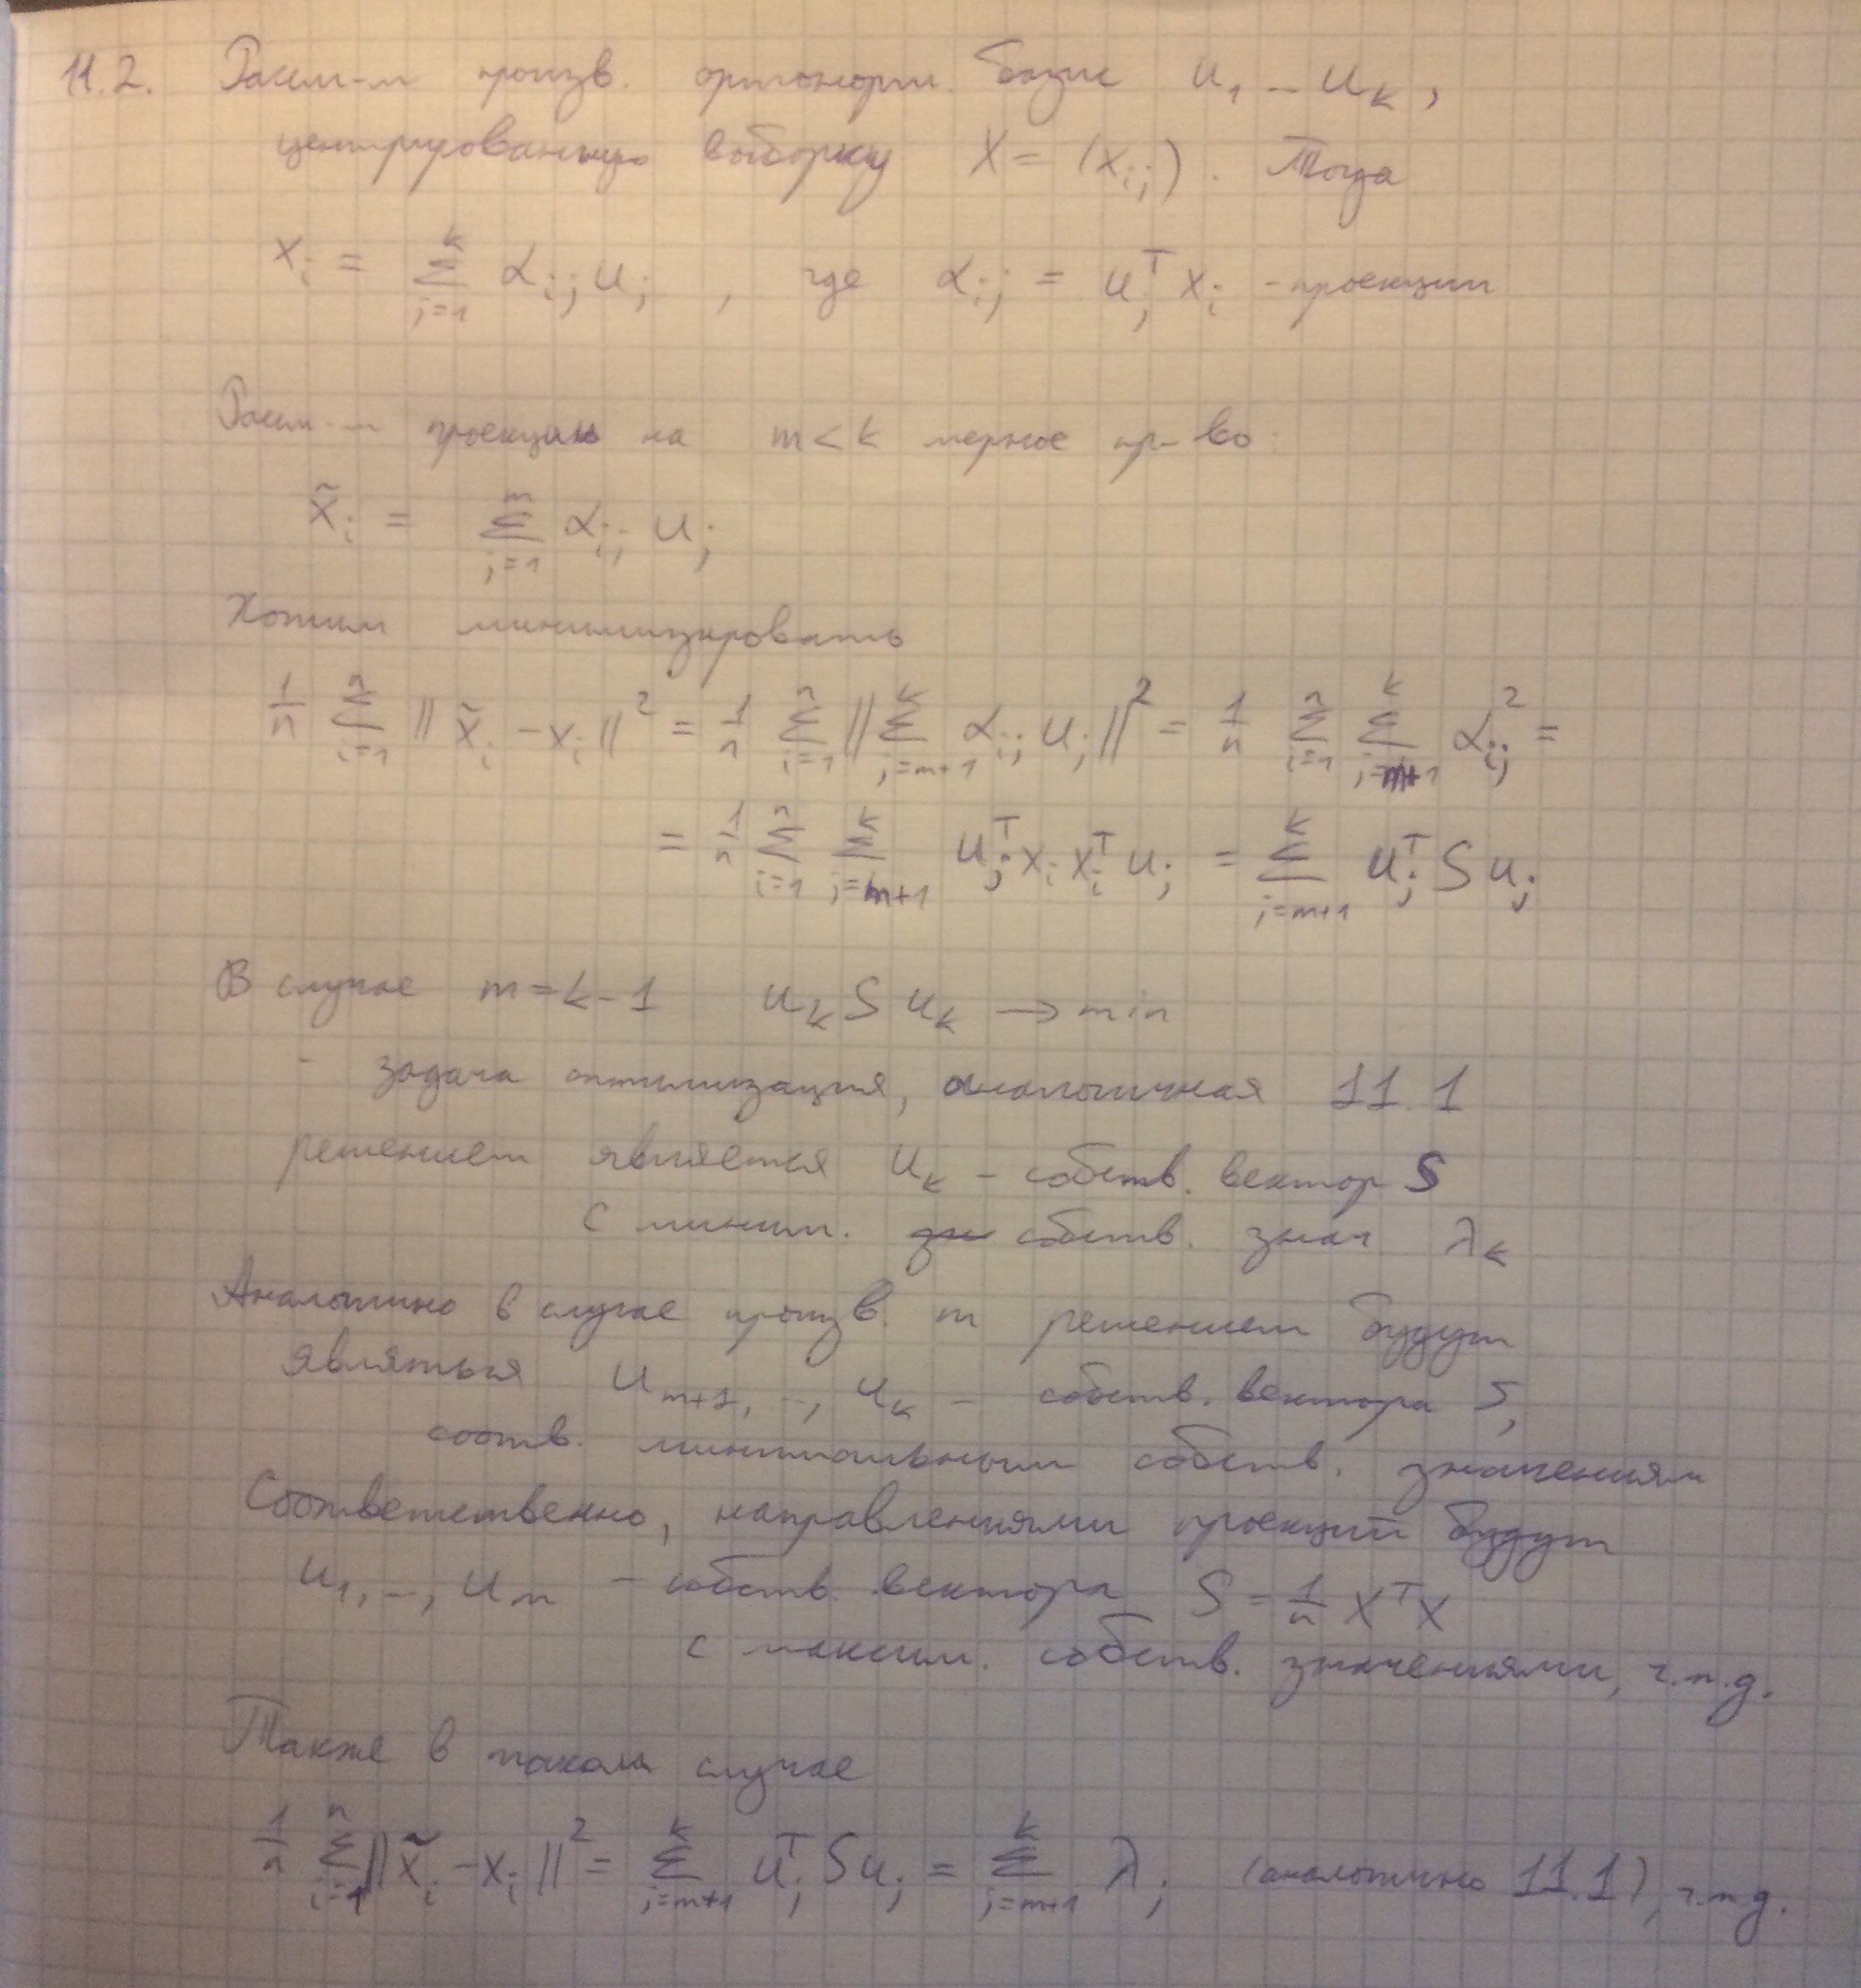 11.2. Рассм-м произв. ортонорм. базис u₁ … u_k,
центрированную выборку X = (x_{ij}). Тогда
x_i = Σ_{j=1}^{k} α_{ij} u_j , где α_{ij} = u_j^T x_i - проекции
Рассм-м проекцию на m < k мерное пр-во:
x̃_i = Σ_{j=1}^{m} α_{ij} u_j
Хотим минимизировать
1/n Σ_{i=1}^{n} || x̃_i - x_i ||² = 1/n Σ_{i=1}^{n} || Σ_{j=m+1}^{k} α_{ij} u_j ||² = 1/n Σ_{i=1}^{n} Σ_{j=m+1}^{k} α_{ij}² =
= 1/n Σ_{i=1}^{n} Σ_{j=m+1}^{k} u_j^T x_i x_i^T u_j = Σ_{j=m+1}^{k} u_j^T S u_j
В случае m = k-1 u_k S u_k → min
- задача оптимизация, аналогичная 11.1
решением является u_k - собств. вектор S
с миним. собств. знач λ_k
Аналогично в случае произв. m решением будут
являться u_{m+1}, .., u_k - собств. вектора S,
соотв. минимальным собств. значениям
Соответственно, направлениями проекций будут
u₁, .., u_m - собств. вектора S = 1/n X^T X
с максим. собств. значениями, ч.т.д.
Также в таком случае
1/n Σ_{i=1}^{n} || x̃_i - x_i ||² = Σ_{j=m+1}^{k} u_j^T S u_j = Σ_{j=m+1}^{k} λ_j (аналогично 11.1), ч.т.д.